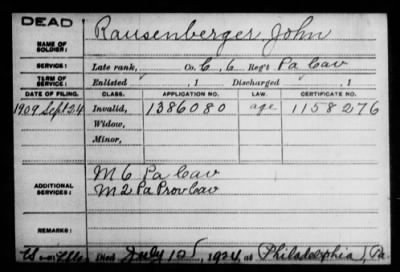 DEAD
NAME OF SOLDIER: Rausenberger, John
SERVICE: Late rank, Co. C, 6 Reg't Pa Cav
TERM OF SERVICE: Enlisted , 1 Discharged , 1
DATE OF FILING. CLASS. APPLICATION NO. LAW. CERTIFICATE NO.
1909 Sept 24 Invalid, 1386080 age 1158276
Widow,
Minor,
ADDITIONAL SERVICES: M 6 Pa Cav
M 2 Pa Prov Cav
REMARKS:
Died July 1924, at Philadelphia, Pa